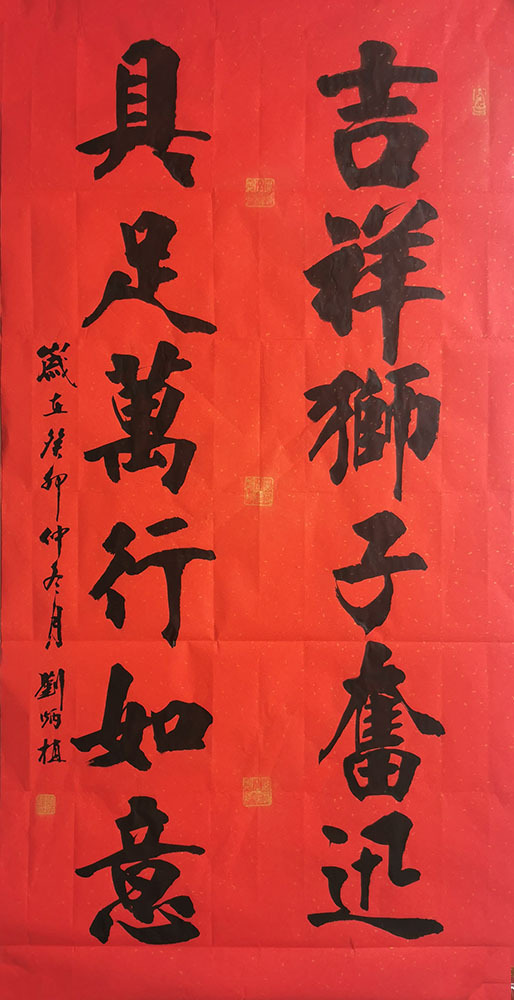 吉祥獅子奮迅
具足萬行如意
歲在癸卯仲冬月 劉炳植